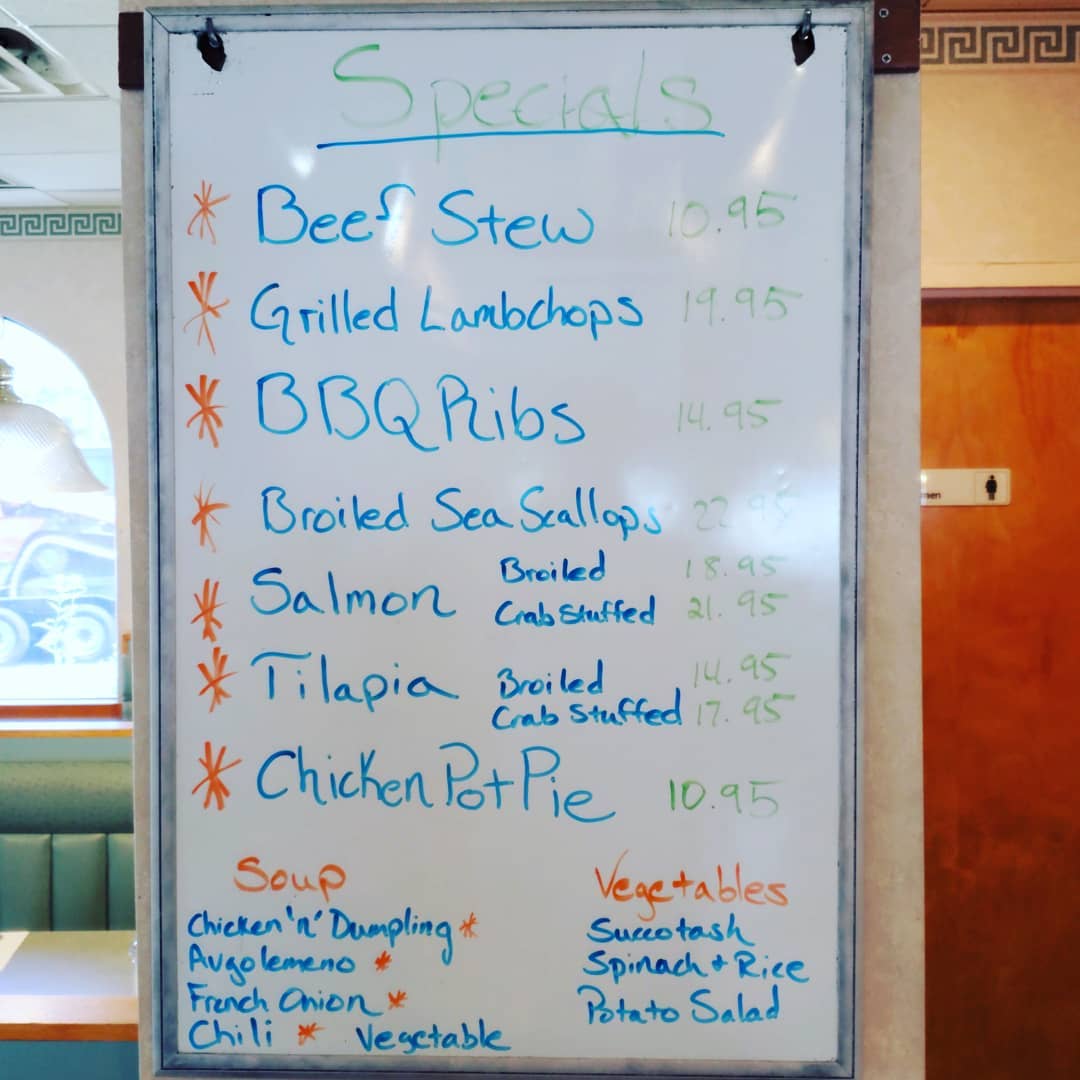 Specials
* Beef Stew 10.95
* Grilled Lambchops 19.95
* BBQ Ribs 14.95
* Broiled Sea Scallops 22.95
* Salmon Broiled 18.95
Crab Stuffed 21.95
* Tilapia Broiled 14.95
Crab Stuffed 17.95
* Chicken Pot Pie 10.95
Soup
Chicken 'n' Dumpling *
Avgolemeno *
French Onion *
Chili * Vegetable
Vegetables
Succotash
Spinach + Rice
Potato Salad